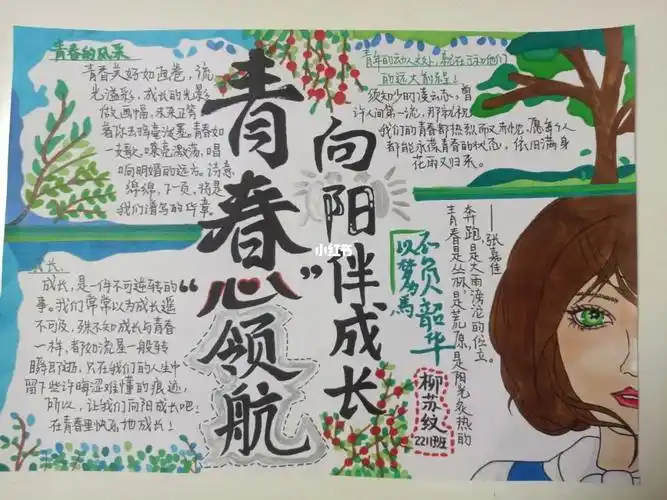 青春的风采
青春美好如画卷，流
光溢彩，成长的光影
做画幅，未来正等
着你去挥毫泼墨。青春如
一支歌，嘹亮激荡，唱
响明媚的远方。诗意
绵绵，下一页，将是
我们谱写的华章。
成长
成长，是一件不可逆转的
事。我们常常以为成长遥
不可及，殊不知成长与青春
一样，都如流星一般转
瞬即逝，只在我们的人生中
留下些许晦涩难懂的痕迹，
所以，让我们向阳成长吧！
在青春里快乐地成长！
青春“心”领航
向阳伴成长
小红书
青年的动人之处，就在于
他们
的远大前程！
须知少时凌云志，曾
许人间第一流，那就祝
我们的青春都热烈而又
愿每个人
都能永葆青春的状态，依旧满身
花雨又归来。
以梦为马
不负韶华
柳苏纹
2211班
青春是丛林，是荒原，是阳光炙热的
奔跑，是大雨滂沱的伫立。
——张嘉佳